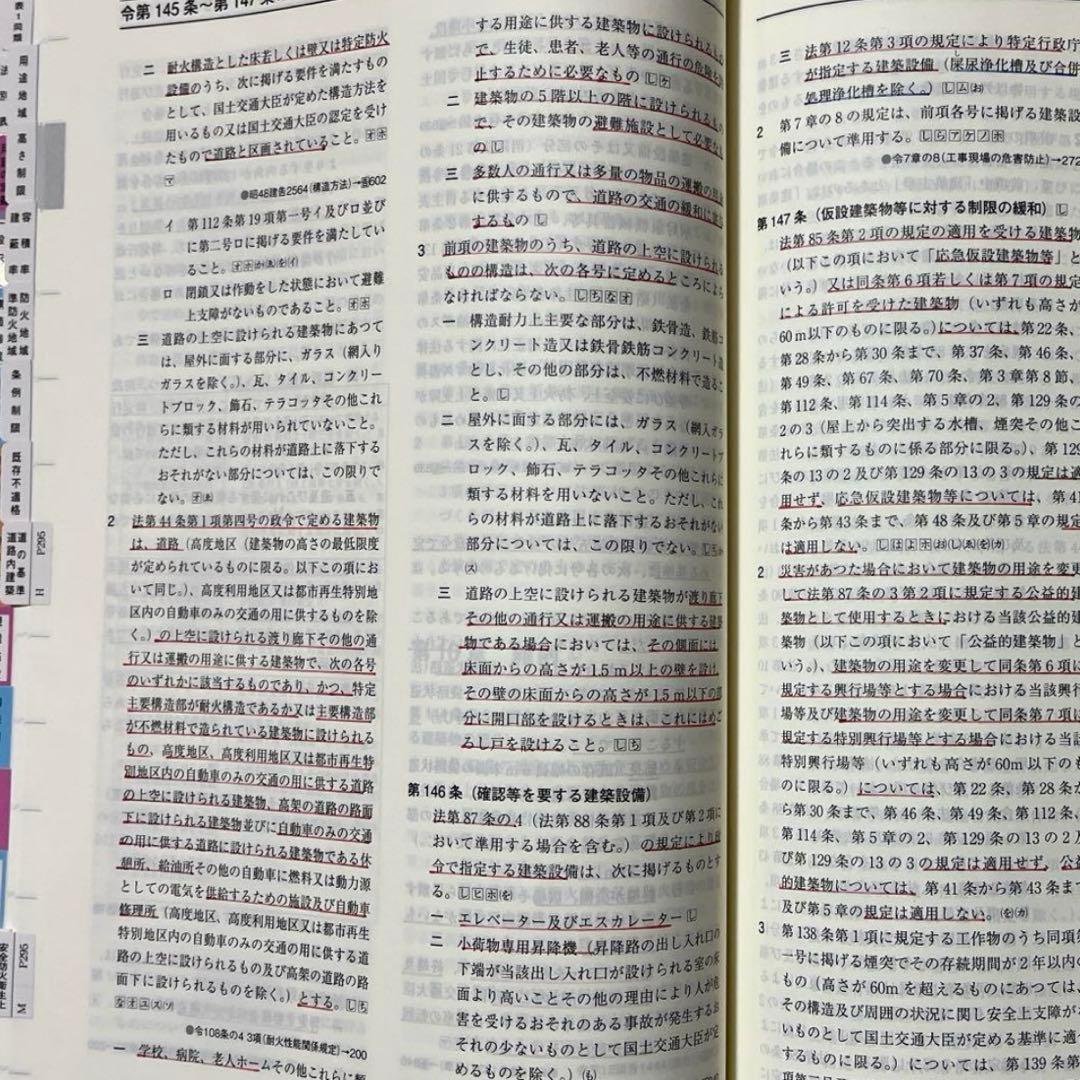 令第145条～第147条
二 耐火構造とした床若しくは壁又は特定防火
設備のうち、次に掲げる要件を満たすもの
として、国土交通大臣が定めた構造方法を
用いるもの又は国土交通大臣の認定を受け
たもので道路と区画されていること。
●昭48建告2564(構造方法)→告602
イ 第112条第19項第一号イ及びロ並び
に第二号ロに掲げる要件を満たしてい
ること。
ロ 閉鎖又は作動をした状態において避難
上支障がないものであること。
三 道路の上空に設けられる建築物にあつて
は、屋外に面する部分に、ガラス(網入り
ガラスを除く。)、瓦、タイル、コンクリー
トブロック、飾石、テラコッタその他これ
らに類する材料が用いられていないこと。
ただし、これらの材料が道路上に落下する
おそれがない部分については、この限りで
ない。
2 法第44条第1項第四号の政令で定める建築物
は、道路(高度地区(建築物の高さの最低限度
が定められているものに限る。以下この項にお
いて同じ。)、高度利用地区又は都市再生特別地
区内の自動車のみの交通の用に供するものを除
く。)の上空に設けられる渡り廊下その他の通
行又は運搬の用途に供する建築物で、次の各号
のいずれかに該当するものであり、かつ、特定
主要構造部が耐火構造であるか又は主要構造部
が不燃材料で造られている建築物に設けられる
もの、高度地区、高度利用地区又は都市再生特
別地区内の自動車のみの交通の用に供する道路
の上空に設けられる建築物、高架の道路の路面
下に設けられる建築物並びに自動車のみの交通
の用に供する道路に設けられる建築物である休
憩所、給油所その他の自動車に燃料又は動力源
としての電気を供給するための施設及び自動車
修理所(高度地区、高度利用地区又は都市再生
特別地区内の自動車のみの交通の用に供する道
路の上空に設けられるもの及び高架の道路の路
面下に設けられるものを除く。)とする。
●令108条の4 3項(耐火性能関係規定)→200
一 学校、病院、老人ホームその他これらに類
する用途に供する建築物に設けられるも
で、生徒、患者、老人等の通行の危険を防
止するために必要なもの
二 建築物の5階以上の階に設けられるもの
で、その建築物の避難施設として必要なも
の
三 多数人の通行又は多量の物品の運搬の用途
に供するもので、道路の交通の緩和に寄与
するもの
3 前項の建築物のうち、道路の上空に設けられる
ものの構造は、次の各号に定めるところによら
なければならない。
一 構造耐力上主要な部分は、鉄骨造、鉄筋コ
ンクリート造又は鉄骨鉄筋コンクリート造
とし、その他の部分は、不燃材料で造るこ
と。
二 屋外に面する部分には、ガラス(網入ガラ
スを除く。)、瓦、タイル、コンクリートブ
ロック、飾石、テラコッタその他これらに
類する材料を用いないこと。ただし、これ
らの材料が道路上に落下するおそれがない
部分については、この限りでない。
三 道路の上空に設けられる建築物が渡り廊下
その他の通行又は運搬の用途に供する建築
物である場合においては、その側面には、
床面からの高さが1.5m以上の壁を設け、
その壁の床面からの高さが1.5m以下の部
分に開口部を設けるときは、これにはめご
ろし戸を設けること。
第146条(確認等を要する建築設備)
法第87条の4(法第88条第1項及び第2項に
おいて準用する場合を含む。)の規定により政
令で指定する建築設備は、次に掲げるものとす
る。
一 エレベーター及びエスカレーター
二 小荷物専用昇降機(昇降路の出し入れ口の
下端が当該出し入れ口が設けられる室の床
面より高いことその他の理由により人が危
害を受けるおそれのある事故が発生するお
それの少ないものとして国土交通大臣が定
めるものを除く。)
三 法第12条第3項の規定により特定行政庁
が指定する建築設備(屎尿浄化槽及び合併
処理浄化槽を除く。)
2 第7章の8の規定は、前項各号に掲げる建築設
備について準用する。
●令7章の8(工事現場の危害防止)→272
第147条(仮設建築物等に対する制限の緩和)
法第85条第2項の規定の適用を受ける建築物
(以下この項において「応急仮設建築物等」と
いう。)又は同条第6項若しくは第7項の規定
による許可を受けた建築物(いずれも高さが
60m以下のものに限る。)については、第22条、
第28条から第30条まで、第37条、第46条、
第49条、第67条、第70条、第3章第8節、
第112条、第114条、第5章の2、第129条の
2の3(屋上から突出する水槽、煙突その他こ
れらに類するものに係る部分に限る。)、第129
条の13の2及び第129条の13の3の規定は適
用せず、応急仮設建築物等については、第41
条から第43条まで、第48条及び第5章の規定
は適用しない。
2 災害があつた場合において建築物の用途を変更
して法第87条の3第2項に規定する公益的建
築物として使用するときにおける当該公益的建
築物(以下この項において「公益的建築物」と
いう。)、建築物の用途を変更して同条第6項に
規定する興行場等とする場合における当該興行
場等及び建築物の用途を変更して同条第7項に
規定する特別興行場等とする場合における当該
特別興行場等(いずれも高さが60m以下のも
のに限る。)については、第22条、第28条か
ら第30条まで、第46条、第49条、第112条、
第114条、第5章の2、第129条の13の2及
び第129条の13の3の規定は適用せず、公益
的建築物については、第41条から第43条まで
及び第5章の規定は適用しない。
3 第138条第1項に規定する工作物のうち同項第
一号に掲げる煙突でその存続期間が2年以内の
もの(高さが60mを超えるものにあつては、
その構造及び周囲の状況に関し安全上支障がな
いものとして国土交通大臣が定める基準に適合
するものに限る。)については、第139条第
用途地域
高さ制限
容積率
建蔽率
防火地域
準防火地域
条例制限
既存不適格
道の基準
道路内建築
P296
H
P296
安全防火衛生上
M